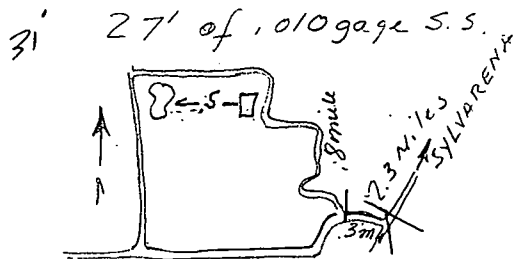 31' 27' of .010 gage S.S.
.5
.8 mile
2.3 Miles
SYLVARENA
.3 mi